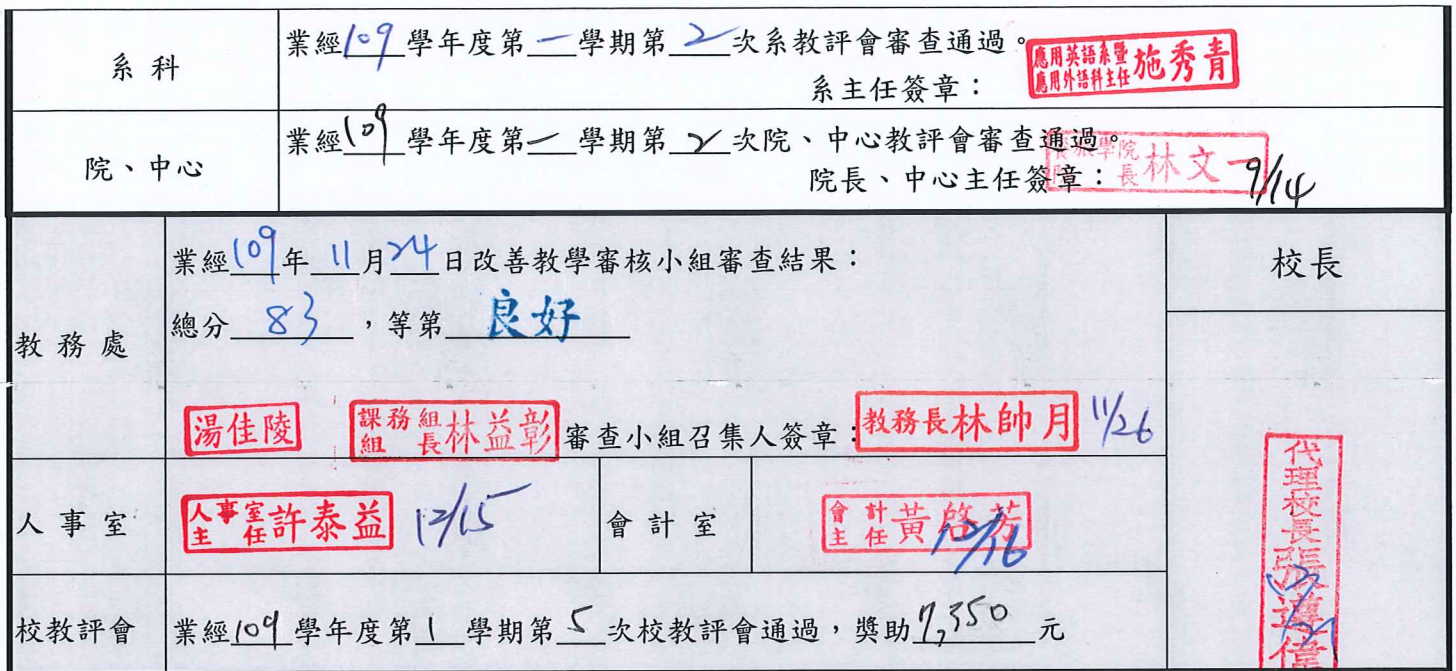 系科
業經109學年度第一學期第2次系教評會審查通過。
系主任簽章：
應用英語系暨
應用外語科主任 施秀青
院、中心
業經109學年度第一學期第2次院、中心教評會審查通過。
院長、中心主任簽章：
餐旅學院
院長 林文一 9/14
教務處
業經109年11月24日改善教學審核小組審查結果：
總分 83 ，等第 良好
湯佳陵 課務組組長林益彰 審查小組召集人簽章： 教務長林帥月 11/26
校長
代理校長張遵偉
人事室
人事室主任許泰益 12/15
會計室
會計主任黃啓芳 12/16
校教評會
業經109學年度第1學期第5次校教評會通過，獎助7,350元